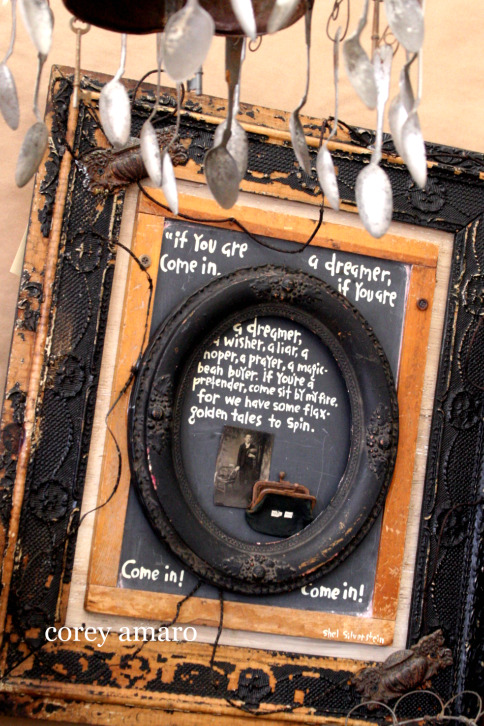 "if You are
a dreamer,
Come in.
if You are
a dreamer,
a wisher, a liar, a
hoper, a prayer, a magic-
bean buyer. if You're a
pretender, come sit by my fire.
for we have some flax-
golden tales to spin.
Come in!
Come in!
Shel Silverstein
corey amaro